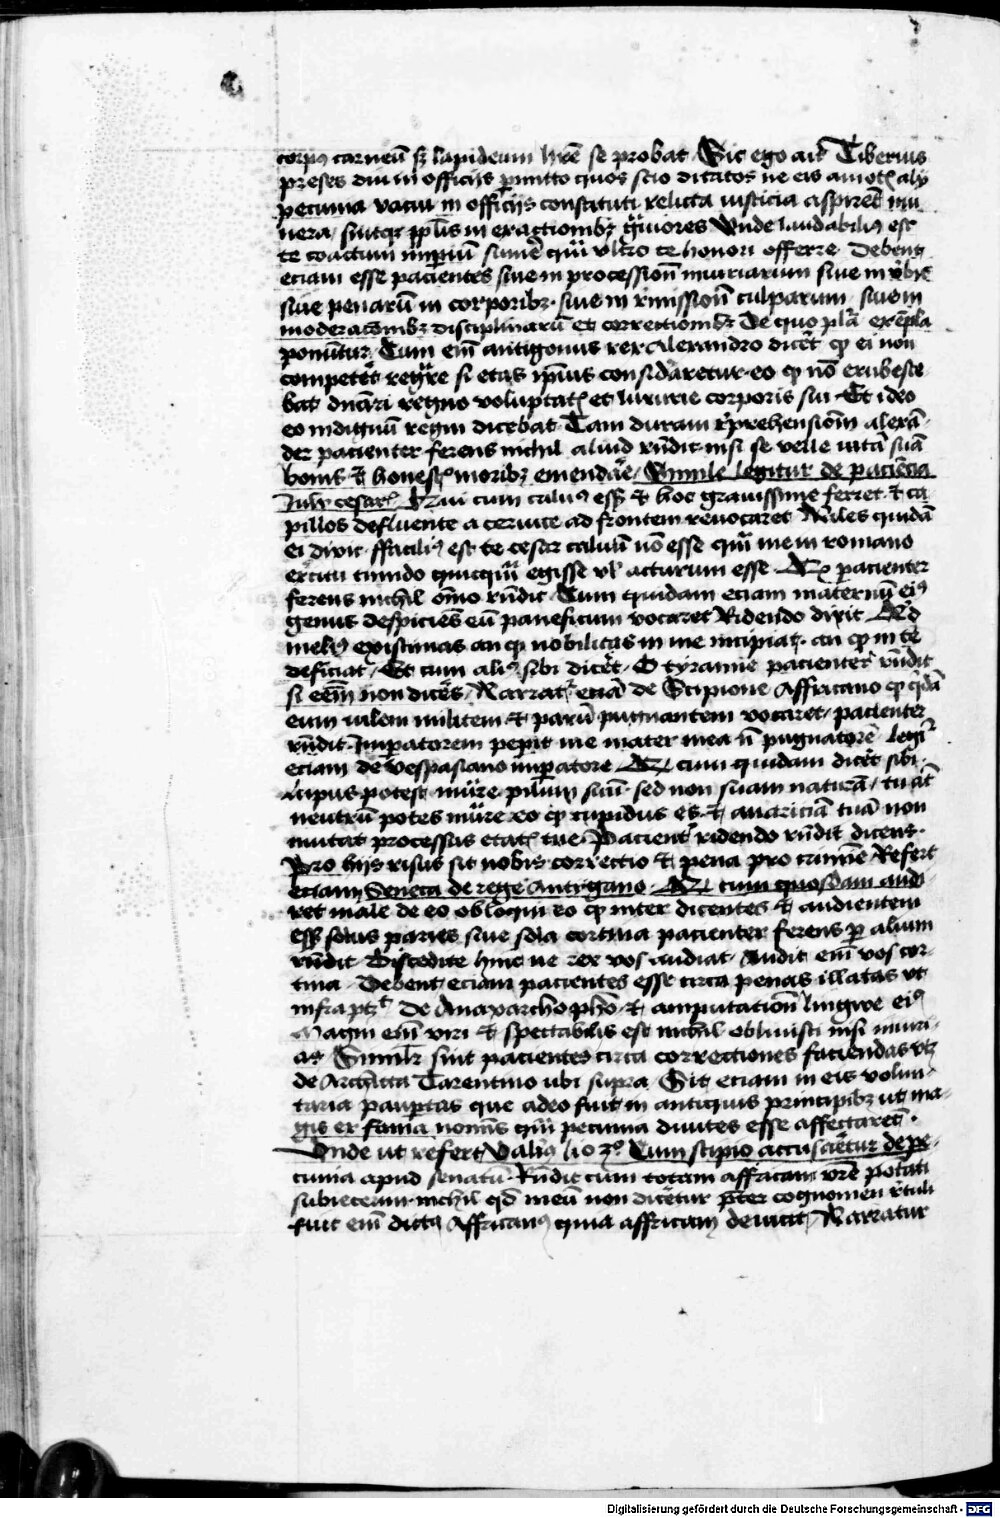 corpꝰ carneū sꝫ lapideum h̄re se probat Sic ego ait Tiberius
preses diu in officijs ꝑmitto quos scio ditatos ne eis amotꝭ alij
pecunia vacui in officijs constituti relicta iusticia aspirēt mu
nera / sintqꝫ pp̄lis in exactionibꝫ gͣuiores Unde laudabiliꝰ est
te coactum imperiū sumere qͣꝫ vltro te honori offerre Debent
eciam esse pacientes siue in processiōn iniuriarum siue in v̾bis
siue penarū in corporibꝫ · siue in rͤmissiōn culparum / siue in
moderacōnibꝫ disciplinarū et correctionibꝫ De quo plͣa exēpla
ponūtur / Cum em̄ antigonus rex Alexandro dicēt qͥ ei non
competēt regͣre si etas ip̄ius considͤaretur eo qͥ nō erubesce
bat dn̄ari regno voluptatꝭ et luxurie corporis sui Et ideo
eo indignū regni dicebat Tam duram rͤprehensiōn alexā-
der pacienter ferens nichil aliud rn̄dit nisi se velle vitā suā
bonis et honestꝭ moribꝫ emendāe / Simile legitur de paciēcia
Iulij cesarꝭ Nam cum caluꝰ essꝫ et hoc grauissime ferret et ca
pillos defluente a ceruice ad frontem reuocaret Miles quidā
ei dixit ffaciliꝰ est te cesar caluū nō esse qͣꝫ me in romano
exͤcitu timido quicqͣꝫ egisse vl̾ acturum esse Qͥ pacienter
ferens nichil om̄o rn̄dit Cum quidam eciam maternū eiꝰ
genus despiciēs eū panificum vocaret Ridendo dixit Qͥd
meliꝰ existimas an qͥ nobilitas in me incipiat · an qͥ in te
deficiat / Et cum aliꝰ sibi dicēt O tyranne pacienter rn̄dit
si eēm non dicēs / Narratꝛ eciā de Scipione Affricano qͥ qͥdā
eum vilem militem et parū pugnantem vocaret / pacienter
rn̄dit Imꝑatorem peperit me mater mea n̄ pugnatorē legiꝛ
eciam de vespasiano imꝑatore Qͥ cum quidam dicēt sibi
lupus potest mͣure pilum suū sed non suam naturā / tu aūt
neutrū potes mͣure eo qͥ cupidus es et auariciā tuā non
mutat processus etatꝭ tue Pacientꝛ ridendo rn̄dit dicens
Pro hijs risus sit nobis correctio et pena pro crimīe Refert
eciam Seneca de rege Antigono Qͥ cum quosdam audi-
ret male de eo obloqui eo qͥ inter dicentes et audientem
essꝫ solus paries siue sola cortina pacienter ferens ꝑ alium
rn̄dit Discedite hinc ne rex vos audiat Audit em̄ vos cor-
tina Debent eciam pacientes esse circa penas illatas vt
infra ptꝫ De Anaxarcho pho et amputaciōn lingwe eiꝰ
Magni em̄ viri et spectabilis est nichil obliuisci nisi iniuri-
as Similꝛ sint pacientes circa correctiones faciendas vt
de Archita Tarentino ubi supra / Sit eciam in eis volun-
taria paupertas que adeo fuit in antiquis principibꝫ ut ma-
gis ex fama nominis qͣꝫ pecunia diuites esse affectarēt ·
Unde ut refert Valiꝰ li° 3° Cum scipio accusaretur de pe-
cunia apud senatū Rn̄dit cum totam affricam vr̄e potati
subiecerim nichil qd meū non diceretur pr̄ter cognomen rͤtuli
fuit em̄ dictꝰ Affricanꝰ quia affricam deuicit / Narratur
Digitalisierung gefördert durch die Deutsche Forschungsgemeinschaft - DFG